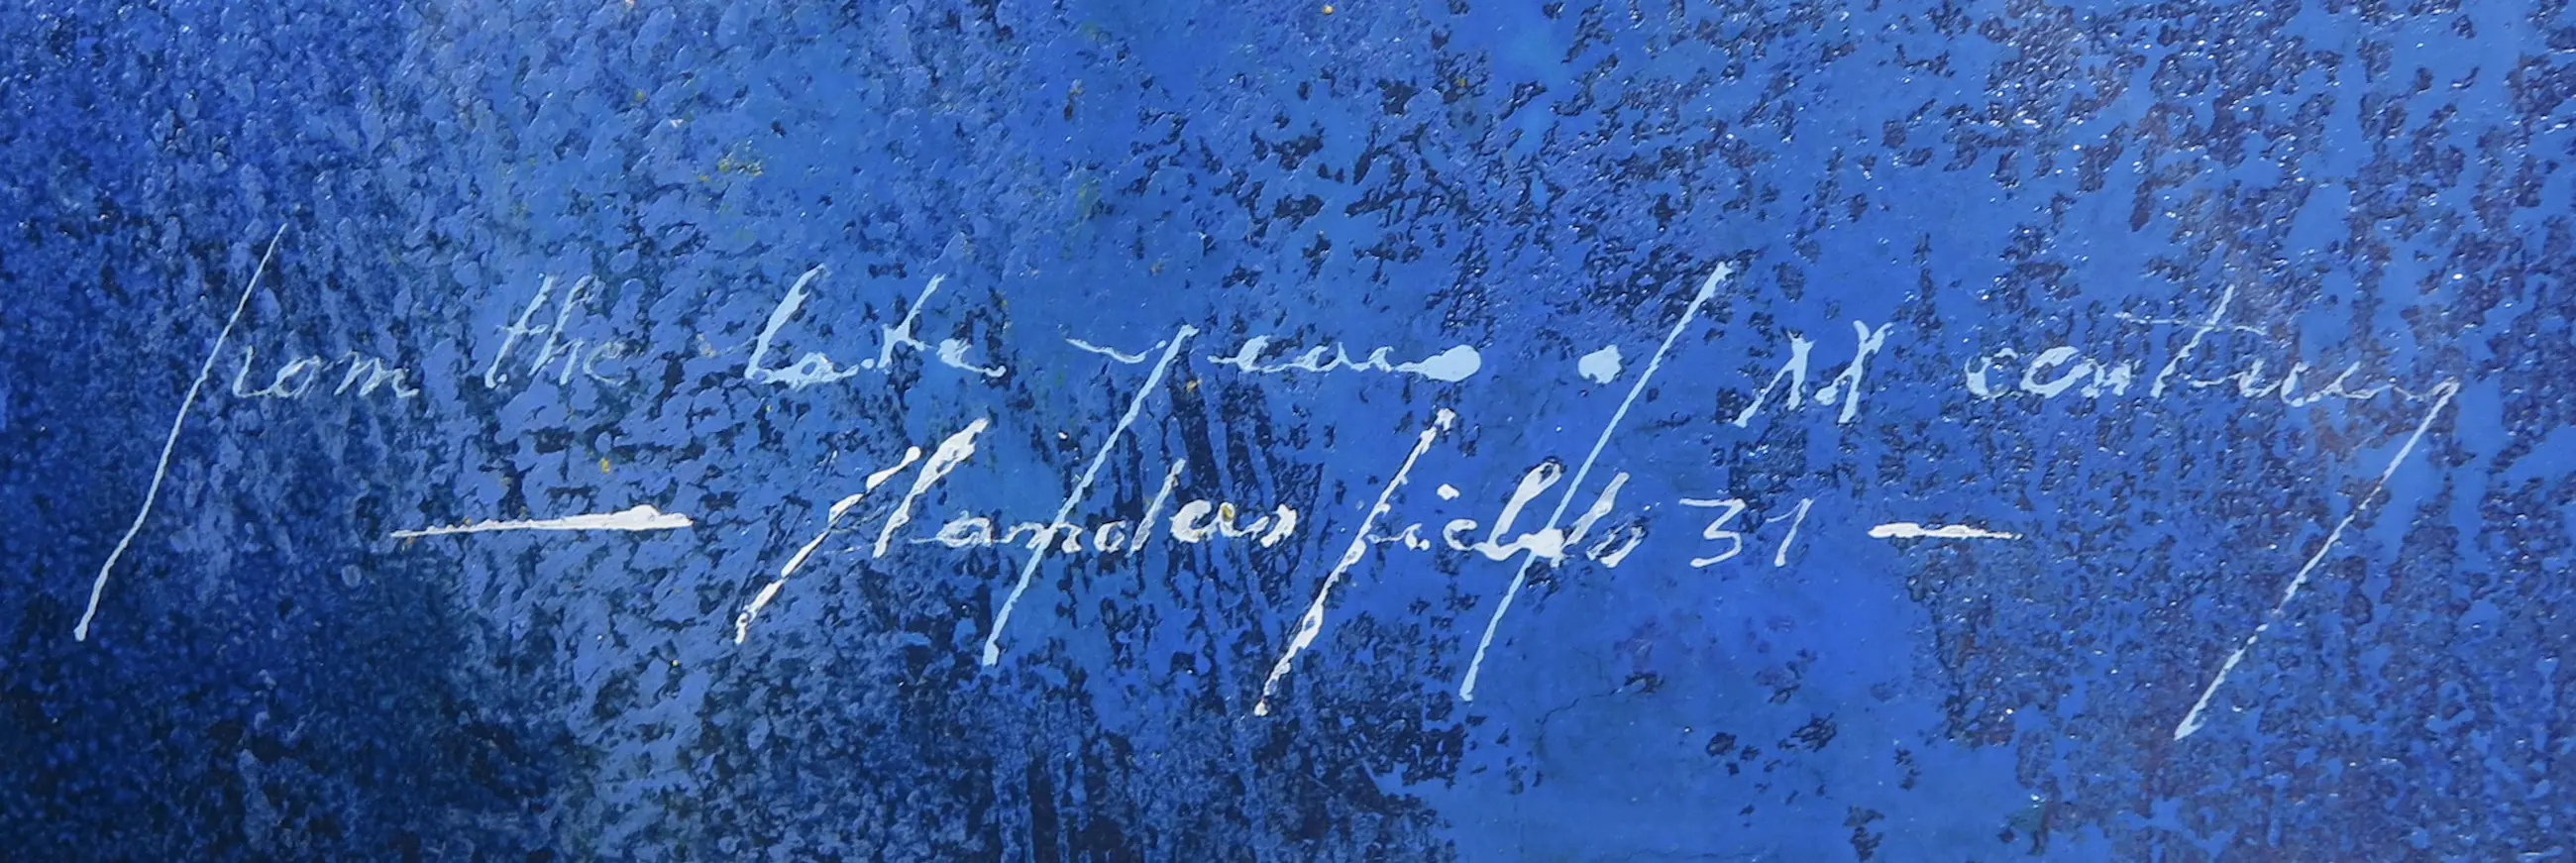 from the late years of XX century
— flanders fields 31 —